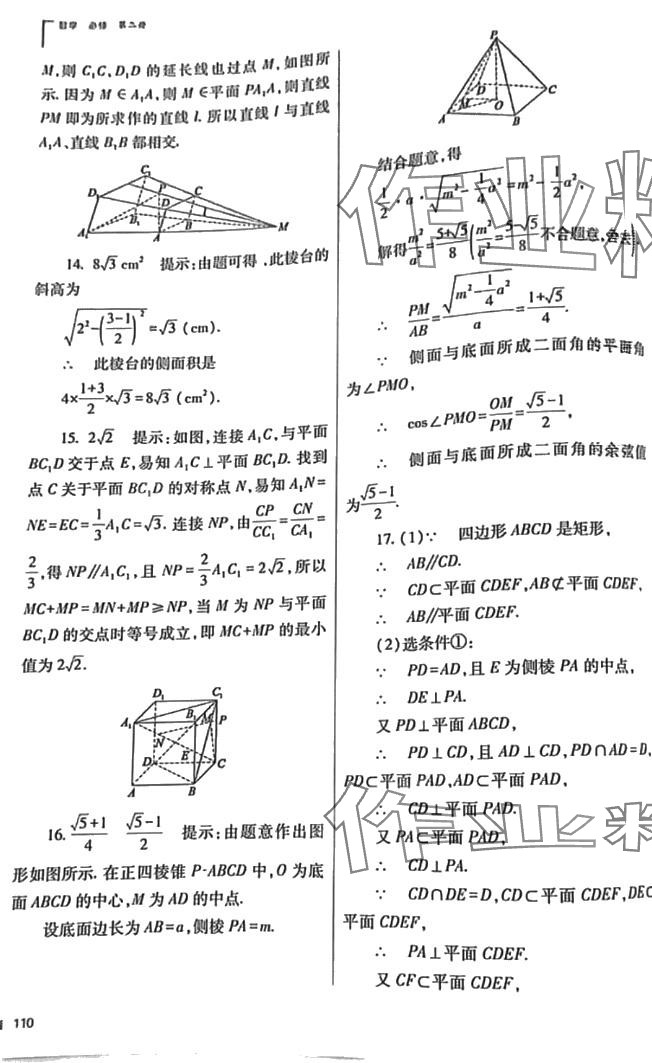 数学 必修 第二册
M,则 C₁C,D₁D 的延长线也过点 M,如图所
示.因为 M∈A₁A,则 M∈平面 PA₁A,则直线
PM 即为所求作的直线 l.所以直线 l 与直线
A₁A、直线 B₁B 都相交.
C₁
D₁ P C
D l
B₁ B M
A₁ A
14. 8√3 cm² 提示:由题可得,此棱台的
斜高为
√(2²-((3-1)/2)²)=√3 (cm).
∴ 此棱台的侧面积是
4×(1+3)/2×√3=8√3 (cm²).
15. 2√2 提示:如图,连接 A₁C,与平面
BC₁D 交于点 E,易知 A₁C⊥平面 BC₁D.找到
点 C 关于平面 BC₁D 的对称点 N,易知 A₁N=
NE=EC=1/3A₁C=√3.连接 NP,由CP/CC₁=CN/CA₁=
2/3,得 NP∥A₁C₁,且 NP=2/3A₁C₁=2√2,所以
MC+MP=MN+MP≥NP,当 M 为 NP 与平面
BC₁D 的交点时等号成立,即 MC+MP 的最小
值为 2√2.
D₁ C₁
A₁ B₁ M P
N
D E C
A B
16. (√5+1)/4 (√5-1)/2 提示:由题意作出图
形如图所示.在正四棱锥 P-ABCD 中,O 为底
面 ABCD 的中心,M 为 AD 的中点.
设底面边长为 AB=a,侧棱 PA=m.
110
P
D C
M O
A B
结合题意,得
1/2·a·√(m²-1/4a²)=m²-1/2a²,
解得m²/a²=(5+√5)/8(m²/a²=(5-√5)/8不合题意,舍去).
∴ PM/AB=√(m²-1/4a²)/a=(1+√5)/4.
∵ 侧面与底面所成二面角的平面角
为∠PMO,
∴ cos∠PMO=OM/PM=(√5-1)/2,
∴ 侧面与底面所成二面角的余弦值
为(√5-1)/2.
17. (1)∵ 四边形 ABCD 是矩形,
∴ AB∥CD.
∵ CD⊂平面 CDEF,AB⊄平面 CDEF,
∴ AB∥平面 CDEF.
(2)选条件①:
∵ PD=AD,且 E 为侧棱 PA 的中点,
∴ DE⊥PA.
又 PD⊥平面 ABCD,
∴ PD⊥CD,且 AD⊥CD,PD∩AD=D,
PD⊂平面 PAD,AD⊂平面 PAD,
∴ CD⊥平面 PAD.
又 PA⊂平面 PAD,
∴ CD⊥PA.
∵ CD∩DE=D,CD⊂平面 CDEF,DE⊂
平面 CDEF,
∴ PA⊥平面 CDEF.
又 CF⊂平面 CDEF,
作业精
作业精